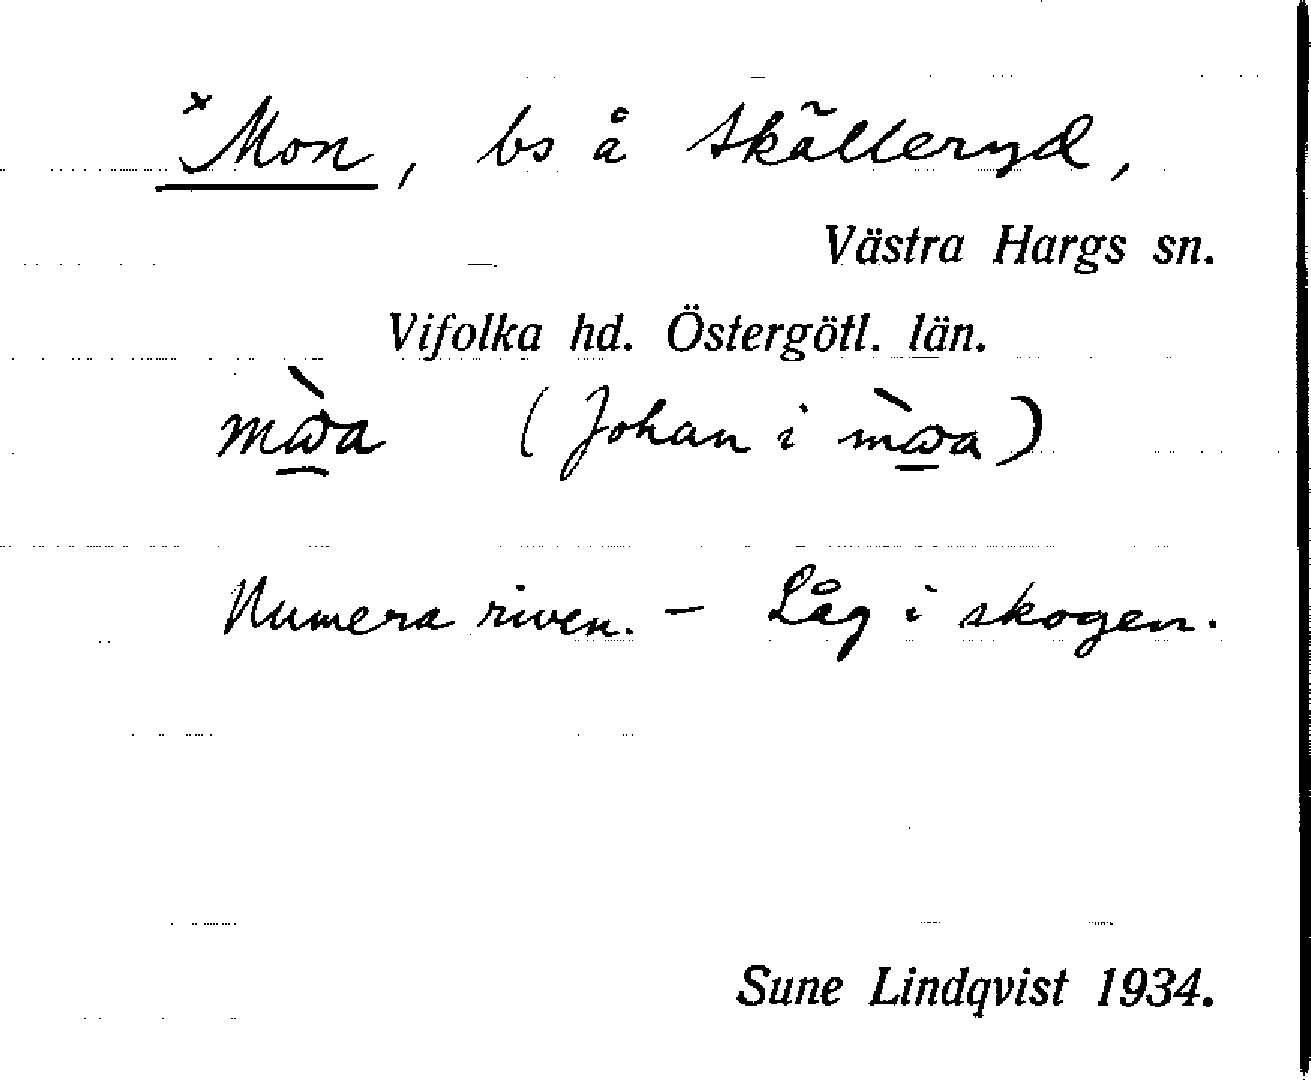 ×Mon, bs å Skälleryd,
Västra Hargs sn.
Vifolka hd. Östergötl. län.
(Johan i
Numera riven. – Låg i skogen.
Sune Lindqvist 1934.